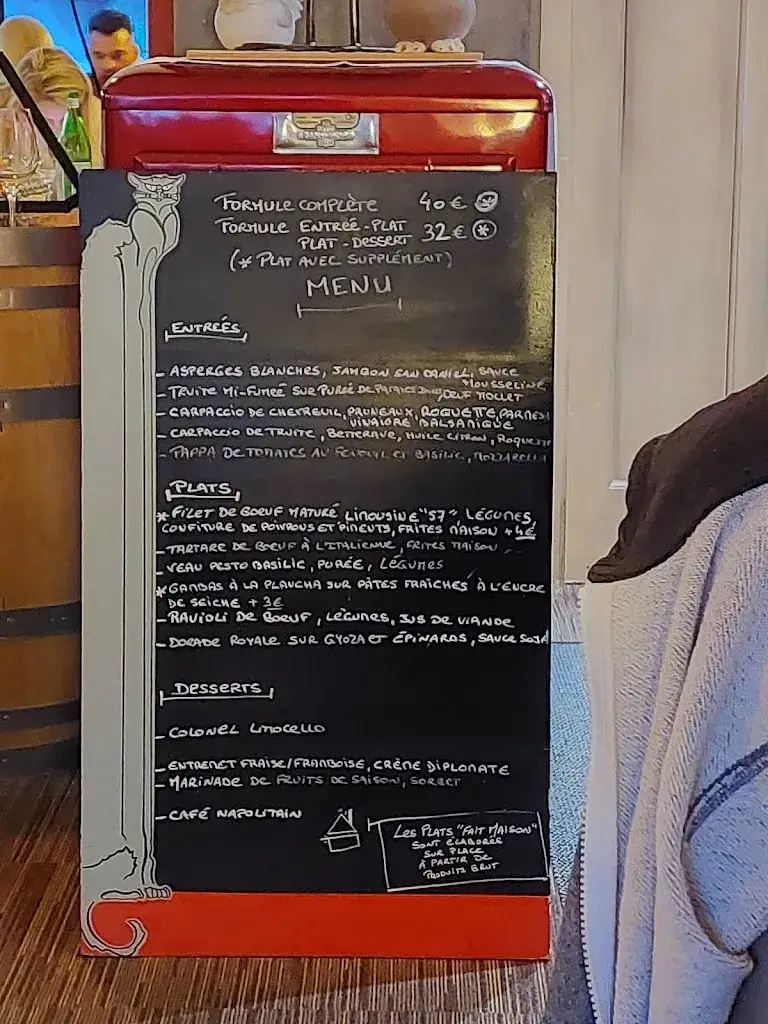 FORMULE COMPLÈTE 40€ *
FORMULE ENTRÉE-PLAT
PLAT-DESSERT 32€ *
(* PLAT AVEC SUPPLÉMENT)
MENU
ENTRÉES
- ASPERGES BLANCHES, JAMBON SAN DANIEL, SAUCE
MOUSSELINE
- TRUITE MI-FUMÉE SUR PURÉE DE OEUF MOLLET
- CARPACCIO DE CHEVREUIL, PRUNEAUX, ROQUETTE, PARMES
VINAIGRE BALSAMIQUE
- CARPACCIO DE TRUITE, BETTERAVE, HUILE CITRON, ROQUETTE
- PAPPA DE TOMATES AU FENOUIL ET BASILIC, MOZZARELLA
PLATS
* FILET DE BOEUF MATURÉ LIMOUSINE "57" LÉGUMES,
CONFITURE DE POIVRONS ET PIMENTS, FRITES MAISON + 4€
- TARTARE DE BOEUF À L'ITALIENNE, FRITES MAISON
- VEAU PESTO BASILIC, PURÉE, LÉGUMES
* GAMBAS À LA PLANCHA SUR PÂTES FRAÎCHES À L'ENCRE
DE SEICHE + 3€
- RAVIOLI DE BOEUF, LÉGUMES, JUS DE VIANDE
- DORADE ROYALE SUR GYOZA ET ÉPINARDS, SAUCE SOJA
DESSERTS
- COLONEL LIMOCELLO
- ENTREMET FRAISE/FRAMBOISE, CRÈME DIPLOMATE
- MARINADE DE FRUITS DE SAISON, SORBET
- CAFÉ NAPOLITAIN
LES PLATS "FAIT MAISON"
SONT ÉLABORÉS
SUR PLACE
À PARTIR DE
PRODUITS BRUT